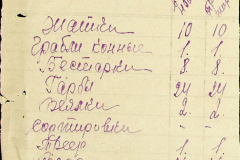 Жатки 10 10
Грабли конные 1. 1.
Бестарки 8. 8.
Гарбы 24 24
Веялки 2. 2.
Сортировки " "
Триер 1. 1.